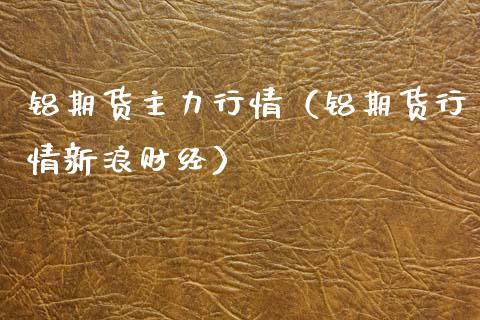 铝期货主力行情（铝期货行
情新浪财经）